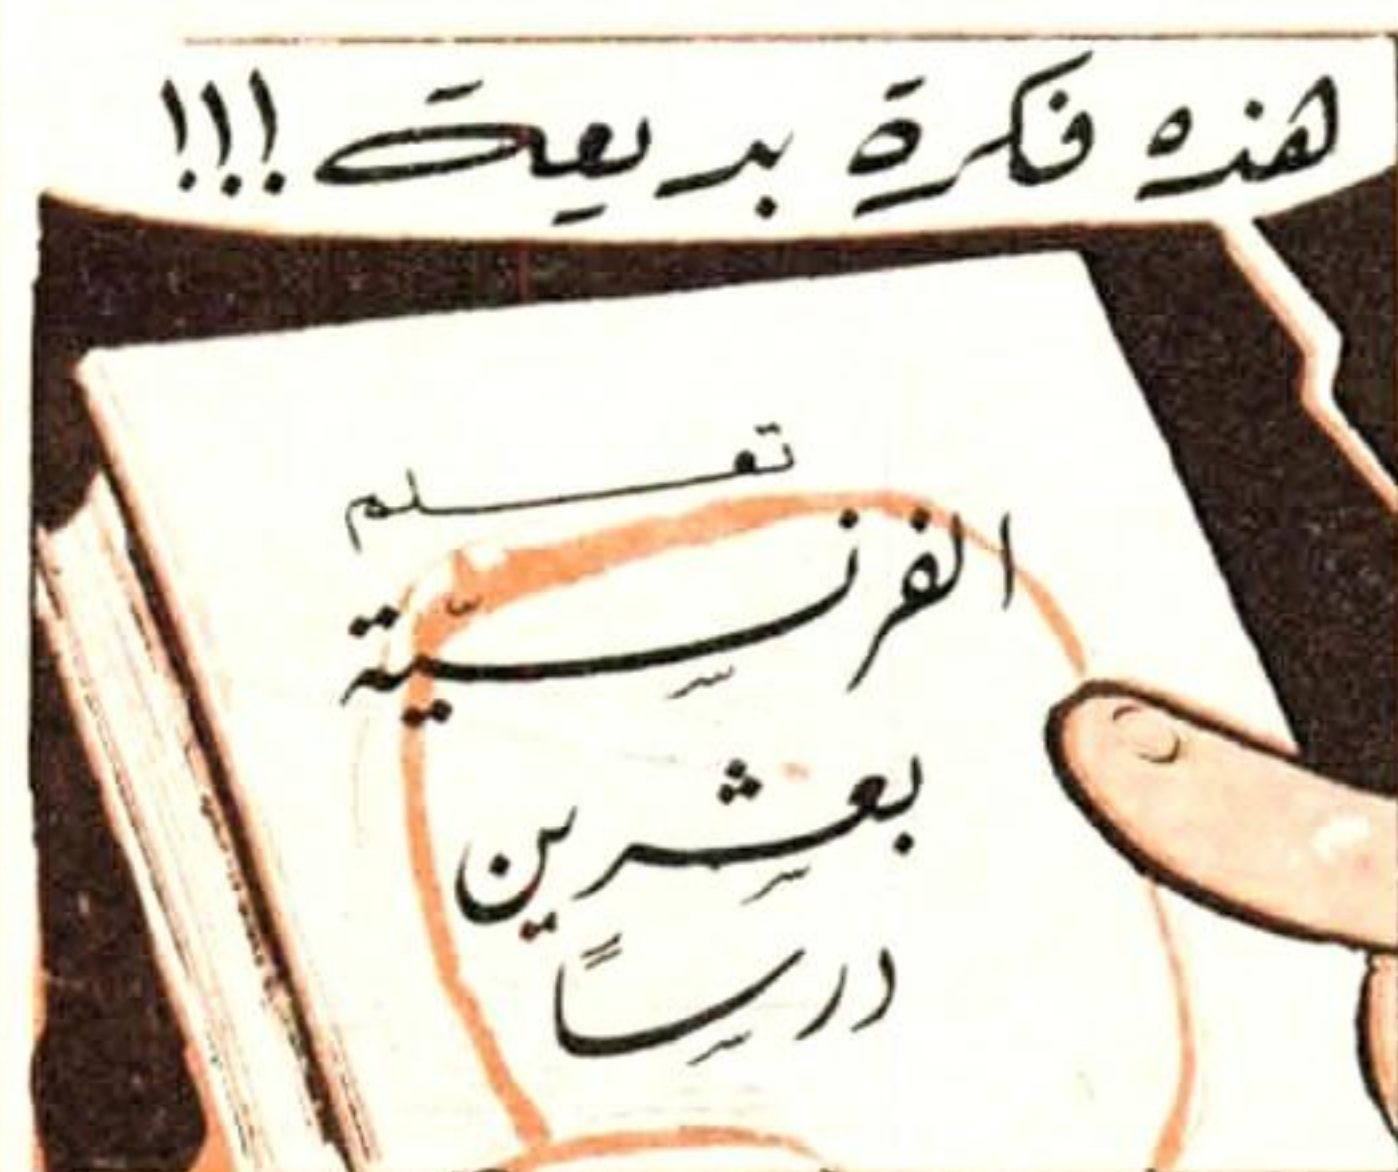 هذه فكرة بديعة !!!
تعلم
الفرنسيّة
بعشرين
درساً